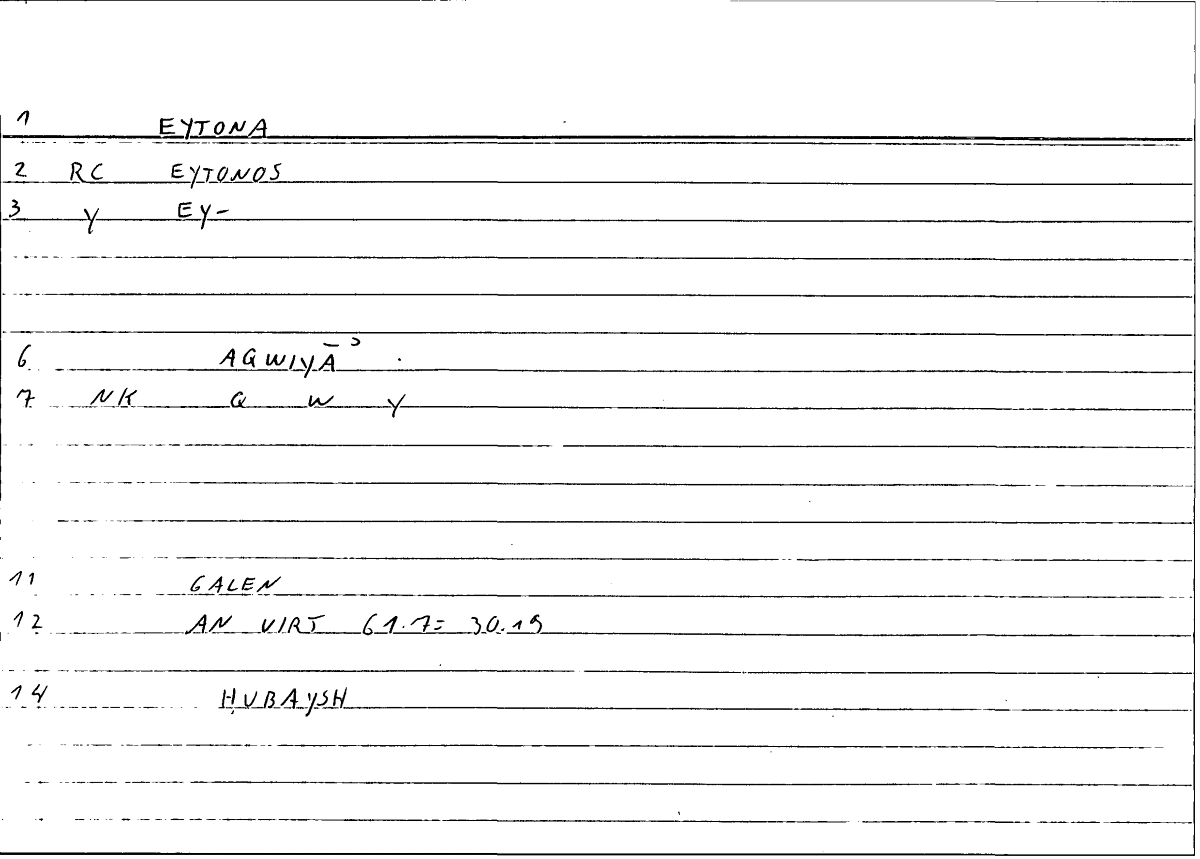 1 EYTONA
2 RC EYTONOS
3 Y EY-
6 AQWIYĀʾ
7 NK Q W Y
11 GALEN
12 AN VIRT 61.7= 30.19
14 ḤUBAYSH